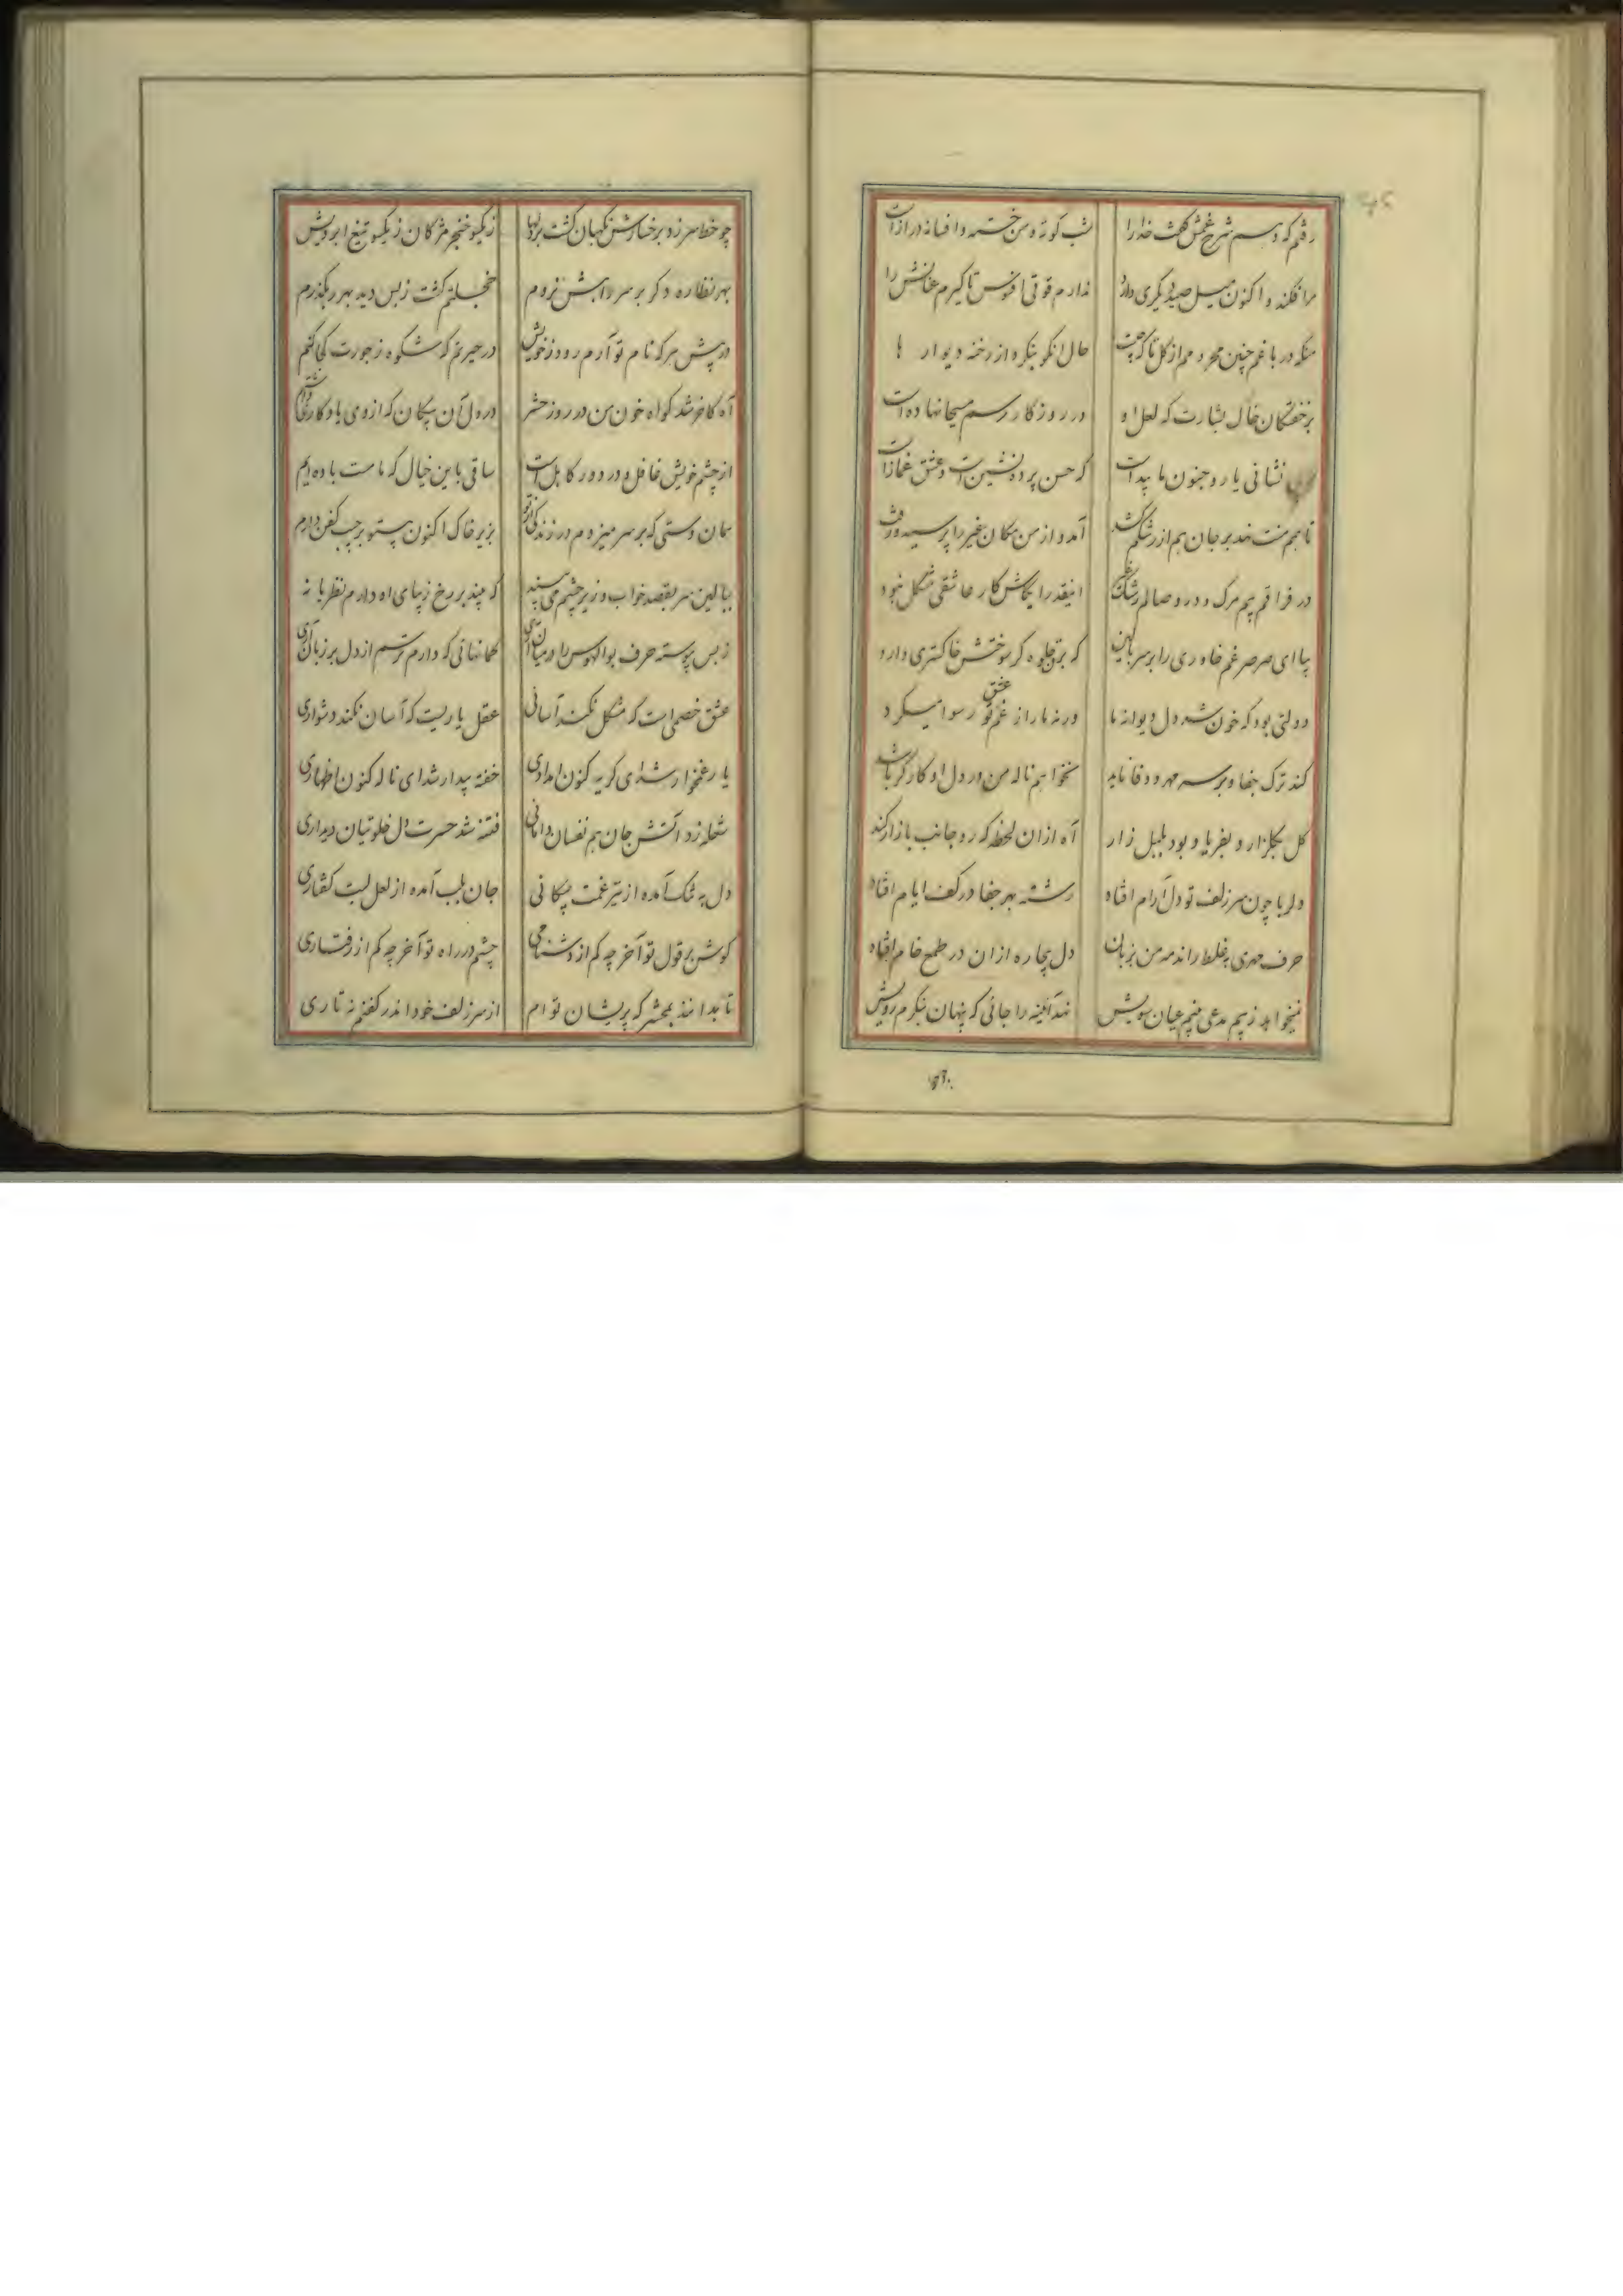 رفتم که دهم شرح غمش گفت خدا را شب کوته و من خسته و افسانه دراز است
مرا افکند و اکنون میل صید دیگری دارد ندارم قوتی افسوس تا گیرم عنانش را
منکه در باغم چنین محروم از گل تا که چیست حال انکو بنگرد از رخنه دیوار ها
بر خفتگان خاک بشارت که لعل او در روزگار رسم مسیحا نهاده است
نشانی یار و جنون ما پیداست که حسن پرده نشین است و عشق غماز است
تا هم منت نهد بر جان هم از رشکم کشد آمد و از من مکان غیر را پرسید و رفت
در فراقم بیم مرگ و در وصالم رشک غیر اینقدر ایکاش کار عاشقی مشکل نبود
بیا ای صرصر غم خاوری را بر سر بالین که برق جلوه گر سوختش خاکستری دارد
دولتی بود که خون شد دل دیوانه ما ورنه ما را ز غم عشق تو رسوا میکرد
کند ترک جفا و بر سر مهر و وفا ناید نخواهم ناله من در دل او کارگر باشد
گل بگلزار و بفریاد بود بلبل زار آه ازان لحظه که رو جانب بازار کند
دلربا چون سر زلف تو دل آرام افتاد رشته مهر جفا در کف ایام افتاد
حرف مهری به غلط راند مه من بزبان دل بیچاره ازان در طمع خام افتاد
نمیخواهد ز بیم مدعی بینم عیان سویش نهد آئینه را جائی که پنهان بنگرم رویش
چو خط سر زد بر خسارش نگهبان گشت بر دلها ز یکسو خنجر مژگان ز یکسو تیغ ابرویش
بهر نظاره دگر بر سر راهش نروم خجلتم گشت ز بس دید بهر رهگذرم
در پیش هر که نام تو آرم رود ز خویش در حیرتم که شکوه ز جورت کجا کنم
آه کاخر شد گواه خون من در روز حشر در دل آن پیکان که از وی یادگاری داشتم
از چشم خویش غافل و در دور کابل است ساقی باین خیال که ما مست باده ایم
همان دستی که بر سر میزدم در زندگی از تو بزیر خاک اکنون بستو بر جیب کفن دارم
ببالین سر بقصد خواب و زیر چشم می بیند که چند بر رخ زیبای او دارم نظر یا نه
ز بس پیوسته حرف بوالهوس را در میان آری نهانی که دارم ترسم از دل بر زبان آری
عشق خصمی است که مشکل نکند آسانی عقل یاریست که آسان نکند دشواری
یار غمخوار شد ای گریه کنون امدادی خفته بیدار شد ای ناله کنون اظهاری
شعله زد آتش جان هم نفسان دامانی فتنه شد حسرت دل خلوتیان دیداری
دل به تنگ آمده از تیر غمت پیکانی جان بلب آمده از لعل لبت گفتاری
گوش بر قول تو آخر چه کم از دشنامی چشم در راه تو آخر چه کم از رفتاری
تا بدانند بمحشر که پریشان توام از سر زلف خود اندر کفنم نه تاری